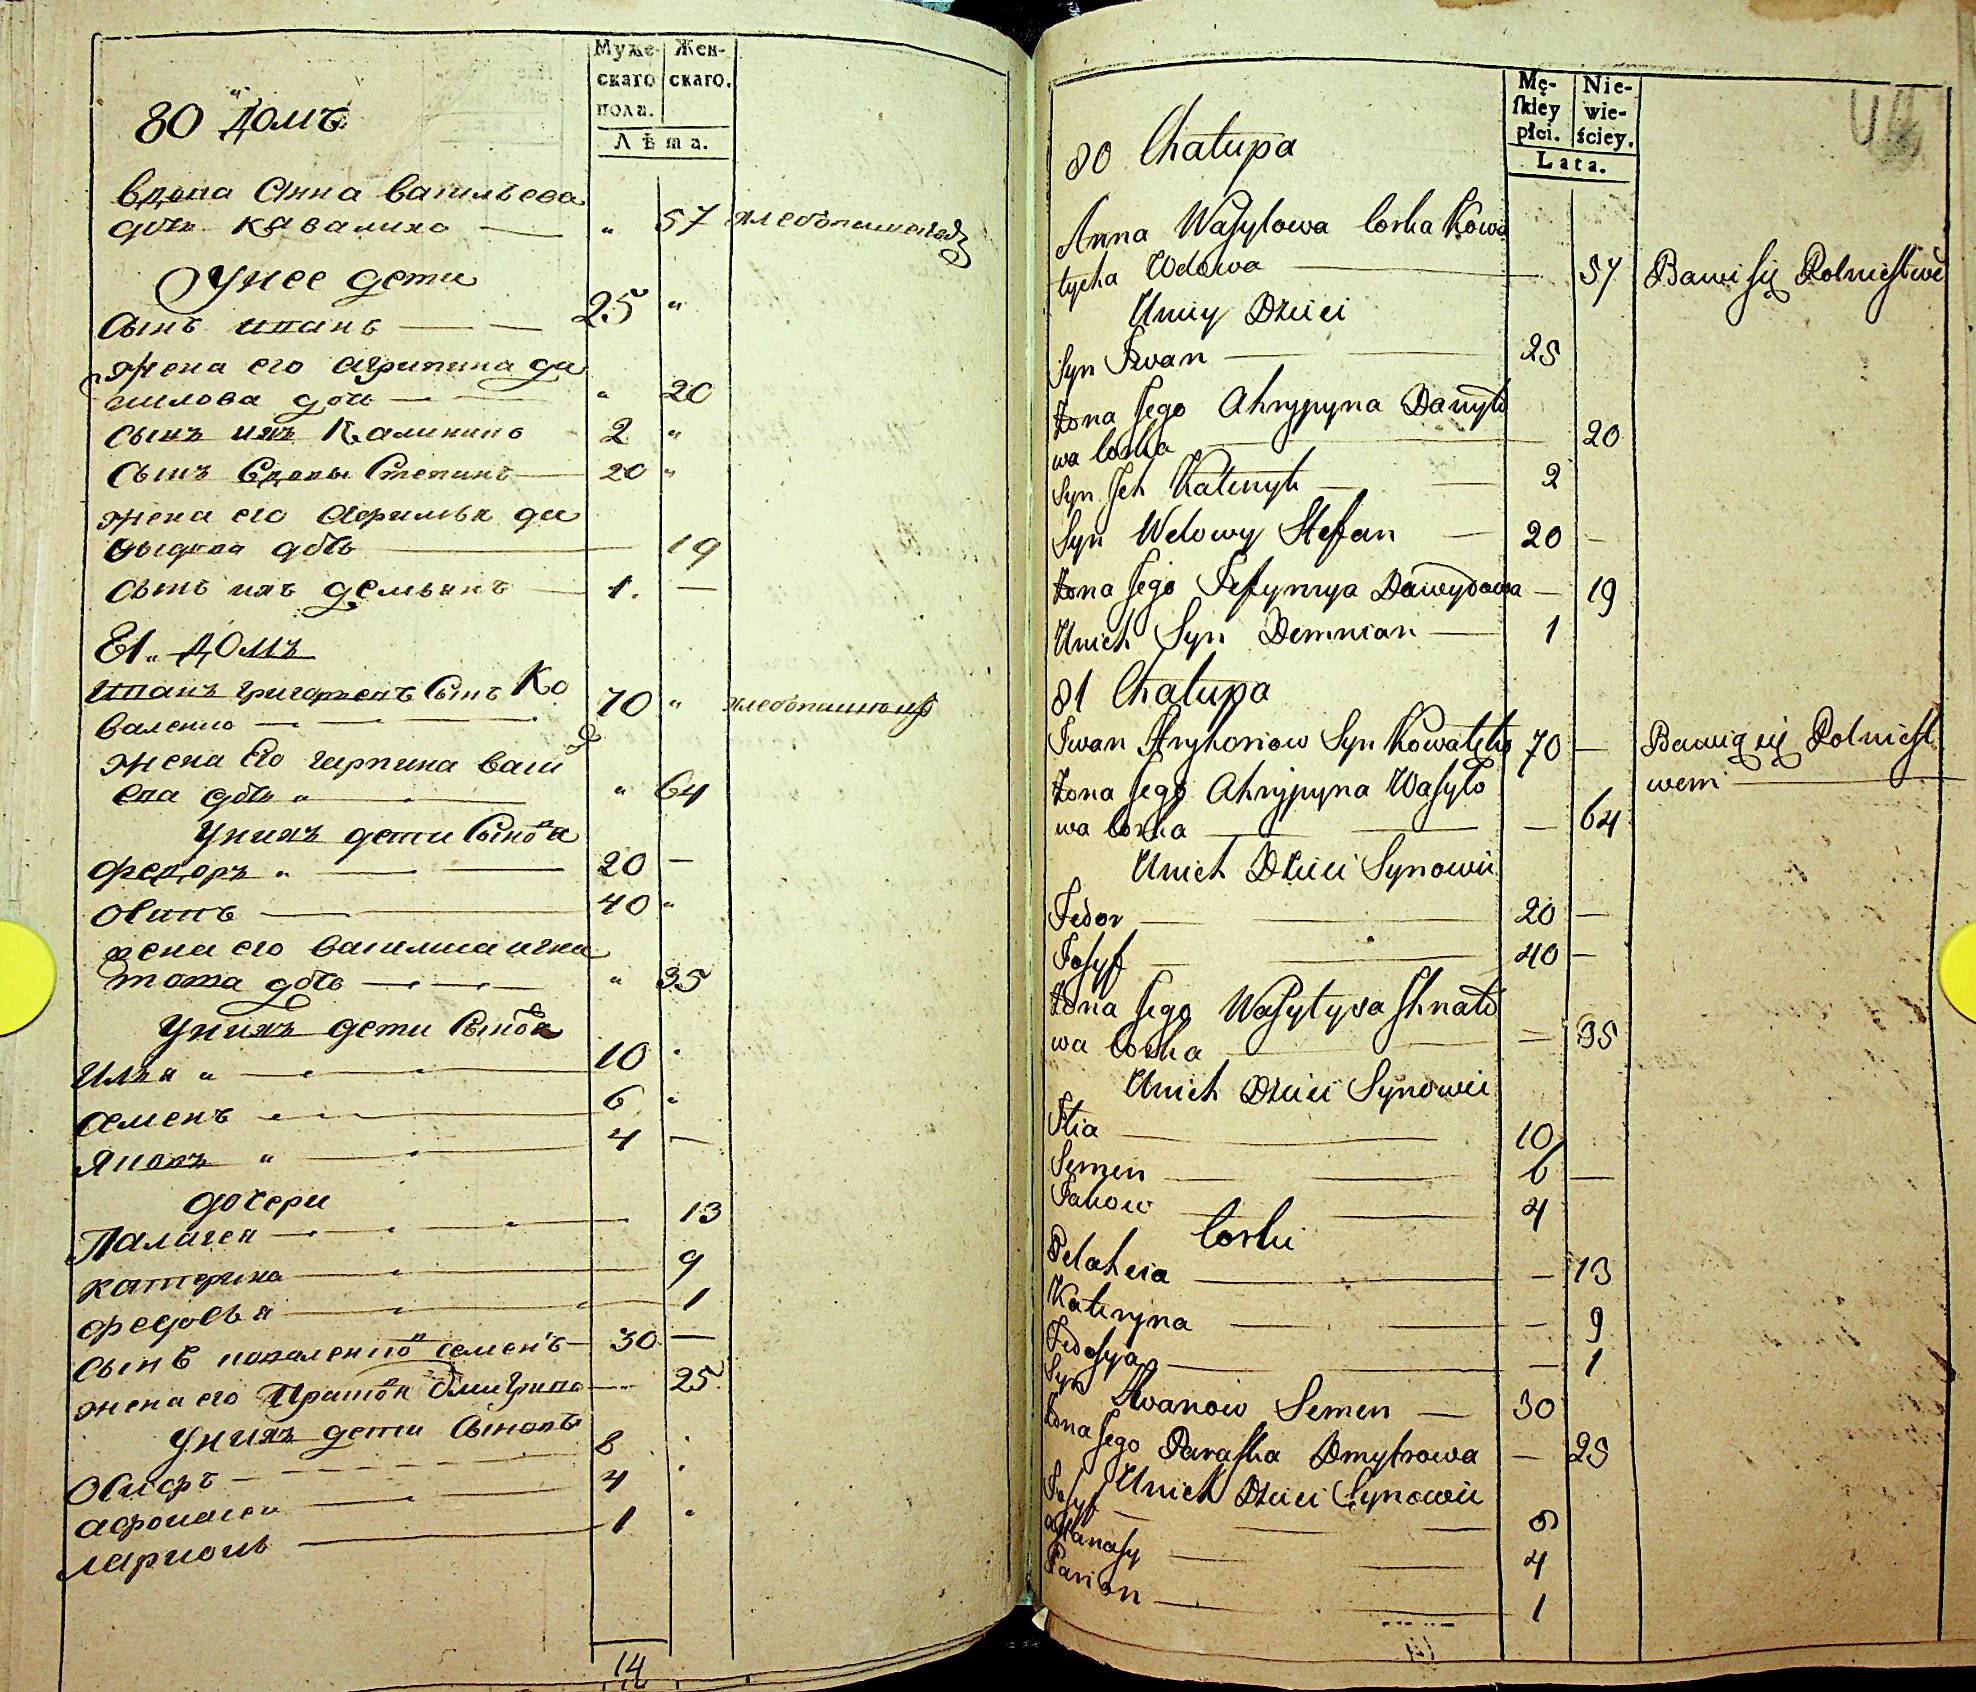 Муже-
скаго
пола.
Жен-
скаго.
Лѣта.
80 Домъ
вдова Анна васильева
дочь Кавалиха — " 57 хлебопашества
Унее дети
Сынъ иванъ — — 25 "
жена его агрипина да
нилова дочь — " 20
сынъ ихъ Калиникъ 2 "
сынъ вдовы Степанъ — 20 "
жена его Афимья да
выдова дочь — 19
сынъ ихъ демьянъ — 1. —
81. Домъ
иванъ григорьевъ сынъ Ко
валенко — — — 70 " хлебопашецъ
жена его гарпина васи
ева дочь " — " 64
Унихъ дети Сынова
федоръ " — — 20 —
Осипъ — 40 "
жена его василиса игна
това дочь — — — " 35
Унихъ дети Сынова
Илья " — — 10
семенъ — 6
Яковъ " — 4 —
дочери
Палагея — — 13
катерина — 9
федосья — 1
сынъ коваленко семенъ — 30 —
жена его Прасковя дмитрова — 25
Унихъ дети Сыновъ
Осифъ — 8
афонасей — 4
ларионъ — 1
14
Mę-
skiey
płci.
Nie-
wie-
ściey.
Lata.
80 Chałupa
Anna Wasylowa Corka Kowa
lycha Wdowa — 57 Bawi się Rolnictwe
Uniey Dzieci
Syn Iwan — 25
Żona Jego Ahrypyna Danyło
wa Corka — 20
Syn Ich Kalenyk — 2
Syn Wdowy Stefan — 20 —
Żona Jego Jefymya Dawydowa — 19
Unich Syn Demnian — 1
81 Chałupa
Iwan Hryhoriow Syn Kowalenko 70 — Bawią się Rolnict
wem —
Żona Jego Ahrypyna Wasylo
wa Corka — — 64
Unich Dzieci Synowie
Fedor — 20 —
Josyf — 40 —
Żona Jego Wasylysa Ihnato
wa Corka — 35
Unich Dzieci Synowie
Ilia — 10
Semen — 6 —
Jakow — 4
Corki
Pelaheia — — 13
Kateryna — — 9
Fedosya — — 1
Syn Iwanow Semen — 30
Żona Jego Paraska Dmytrowa — 25
Unich Dzieci Synowie
Josyf — 8
Afanasy — 4
Larion — 1